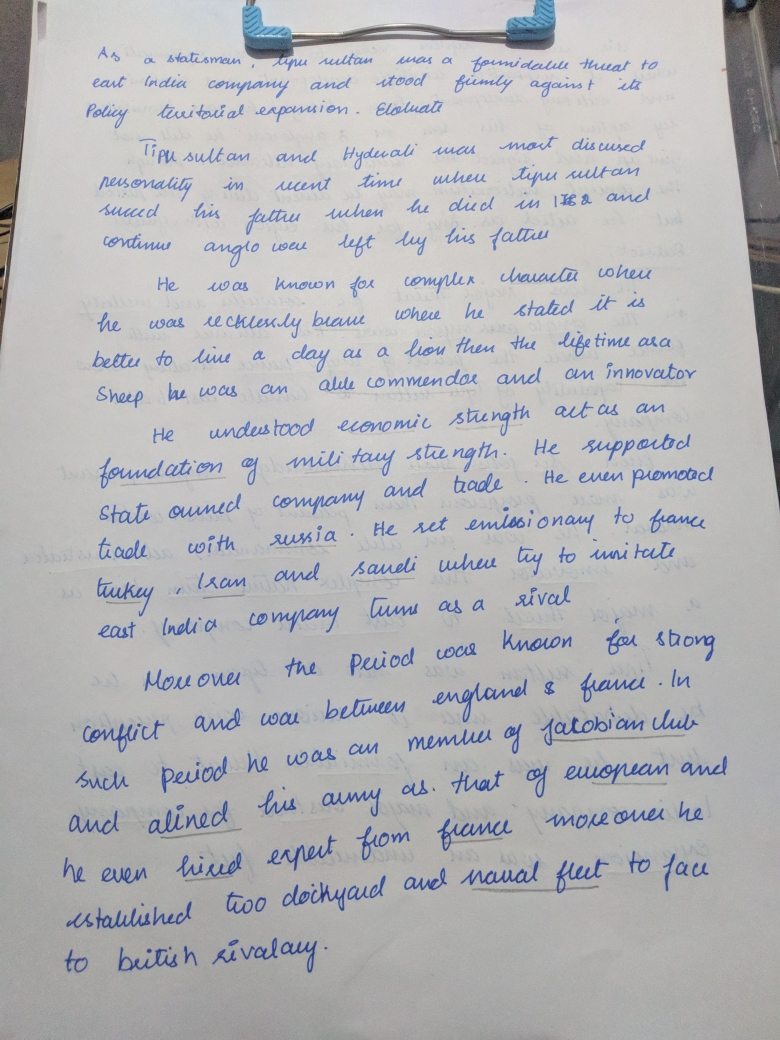 As a statesman, tipu sultan was a formidable threat to
east India company and stood firmly against its
Policy territorial expansion. Elobuate
Tipu sultan and Hyderali was most discused
personality in recent time where tipu sultan
succed his father when he died in and
continue anglo were left by his father
He was known for complex character where
he was recklessly brave where he stated it is
better to live a day as a lion then the lifetime as a
Sheep he was an able commendor and an innovator
He understood economic strength act as an
foundation of military strength. He supported
State owned company and trade. He even promoted
trade with russia. He set emissionary to france
turkey, Iran and saudi where try to imitate
east India company turns as a rival
Moreover the Period was known for strong
conflict and war between england & france. In
such Period he was an member of Jacobian club
and alined his army as. that of european and
he even hired expert from france moreover he
established two dockyard and naval fleet to face
to british rivalary.